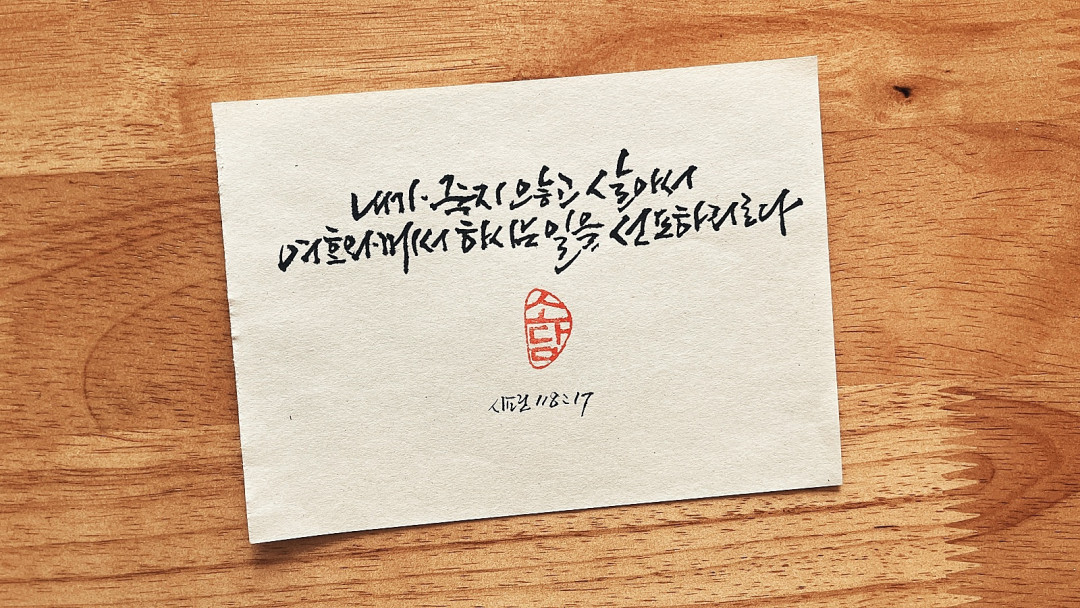 내가 죽지 않고 살아서
여호와께서 하시는 일을 선포하리로다
소담
시편 118:17